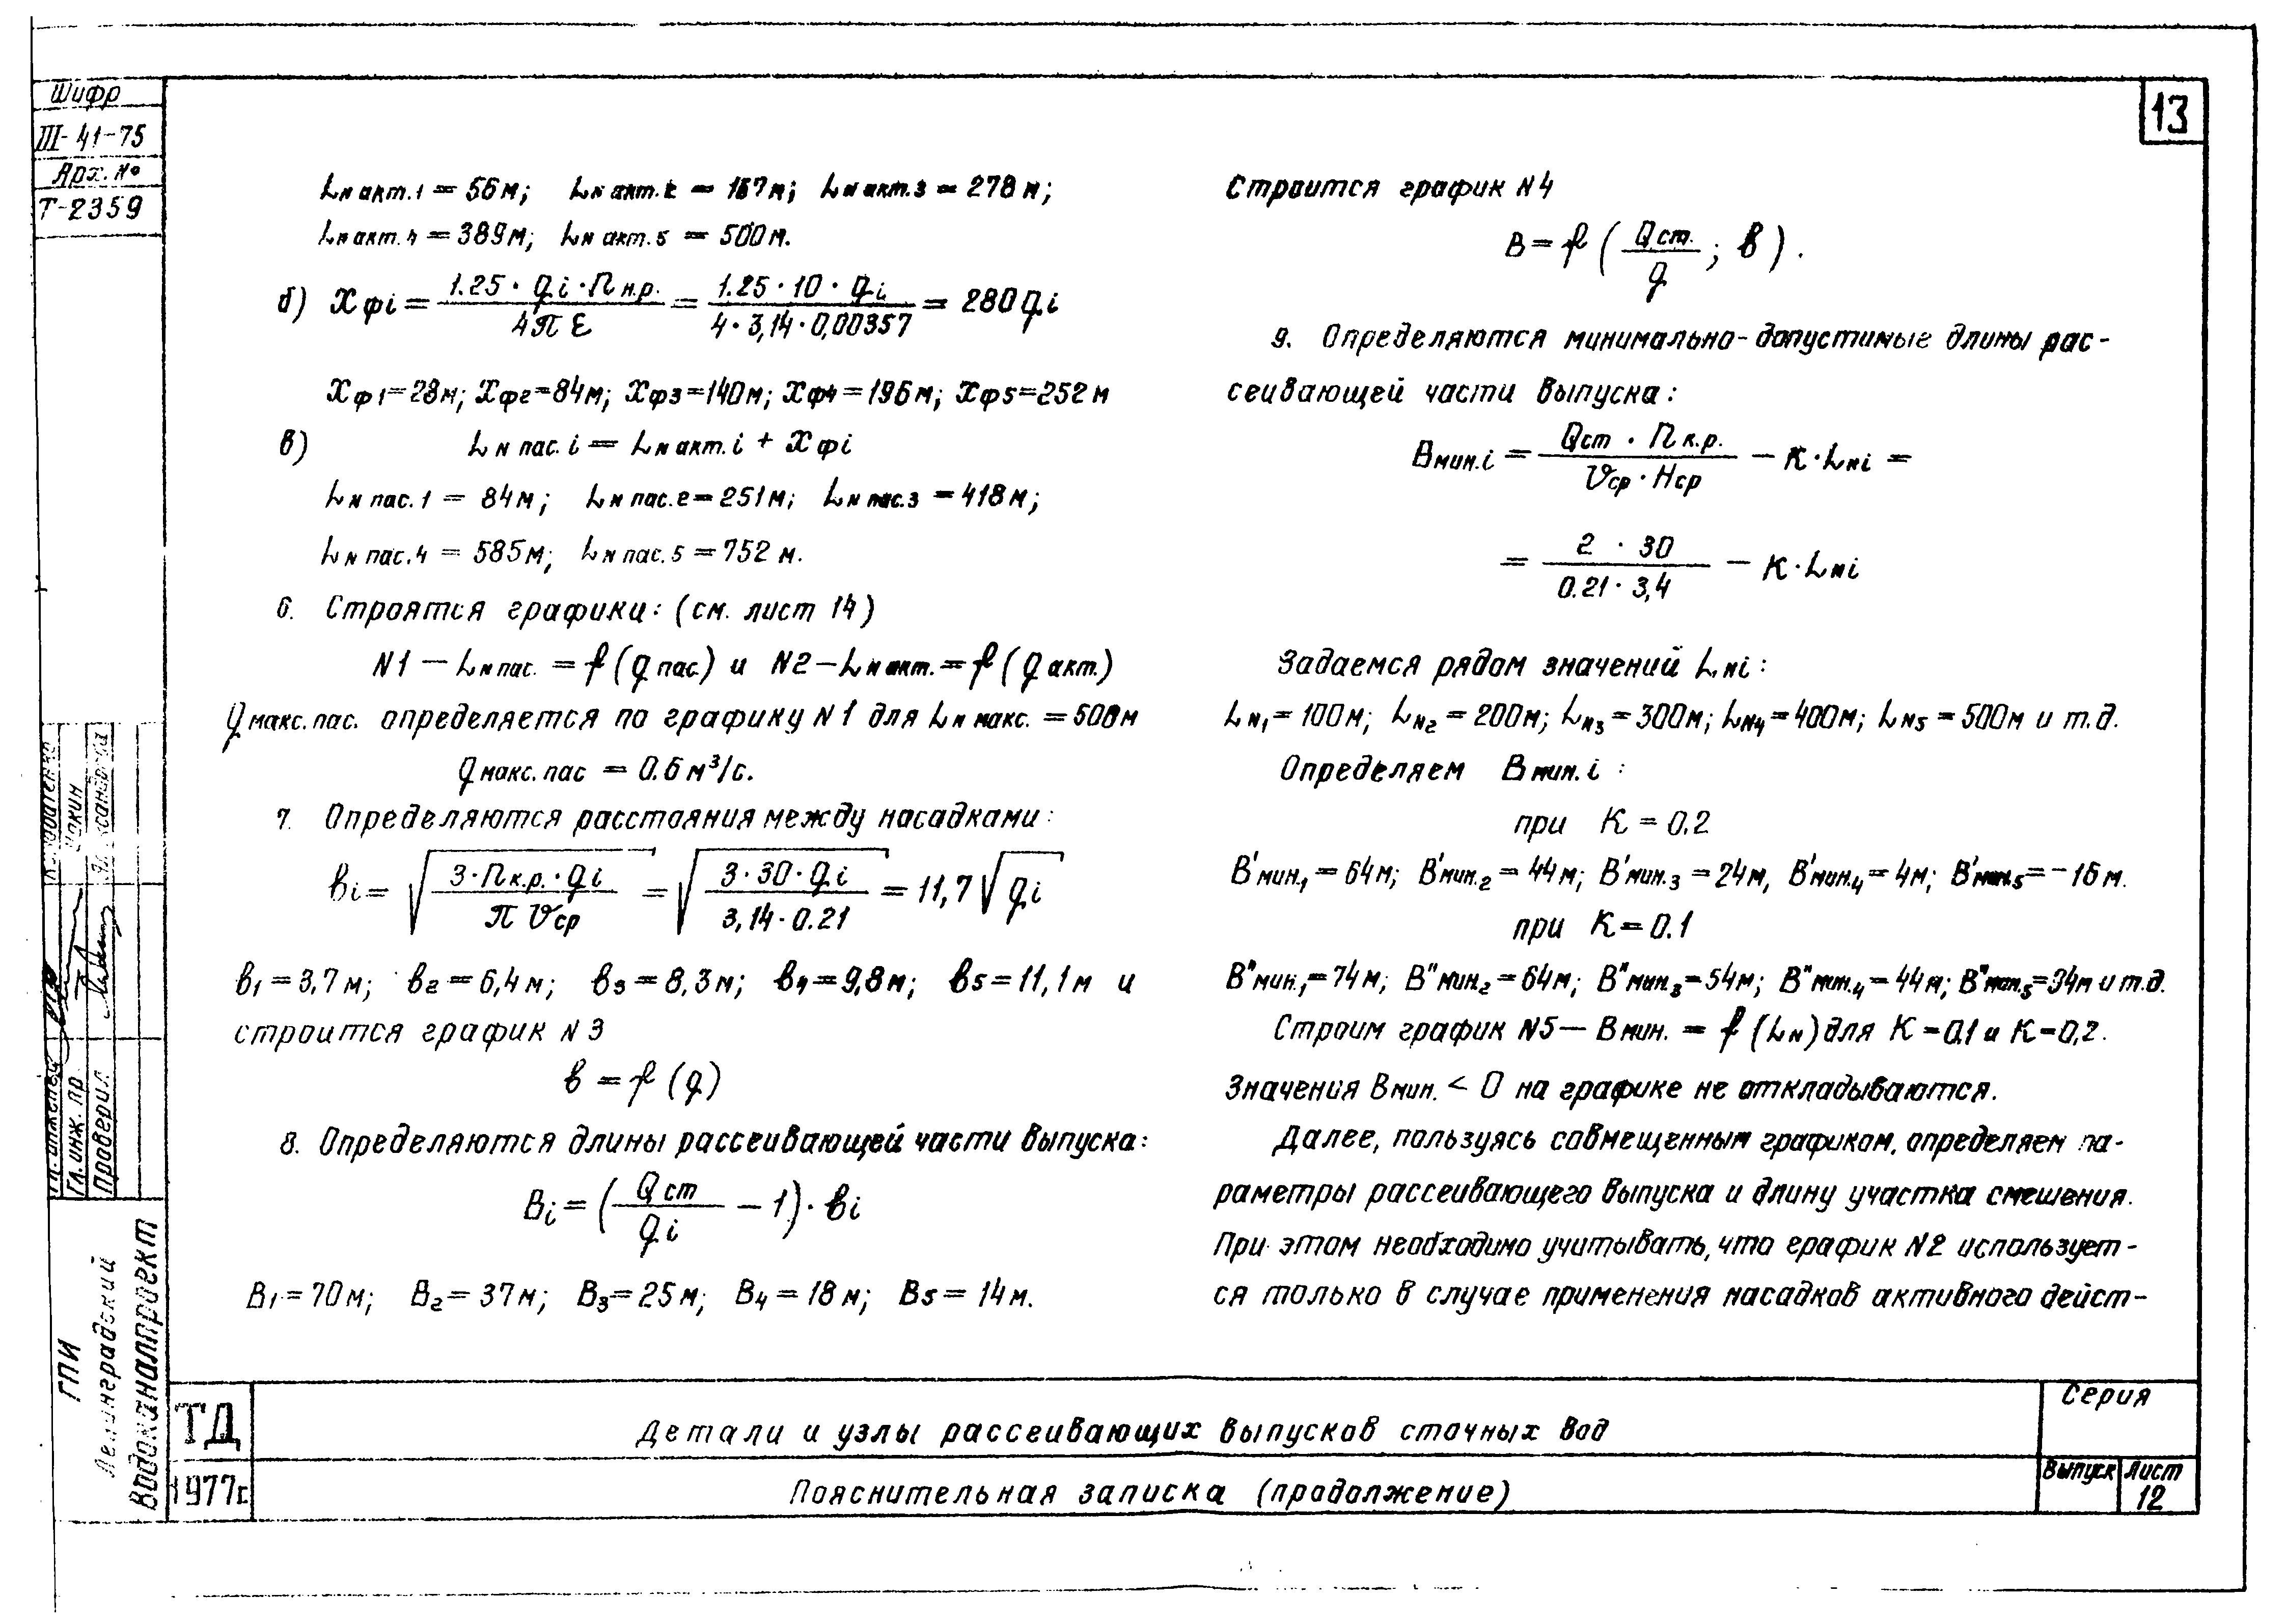 Шифр
III-41-75
Арх. №
Т-2359
13
Lн акт.1 = 56м; Lн акт.2 = 167м; Lн акт.3 = 278м;
Lн акт.4 = 389м; Lн акт.5 = 500м.
б) Xфi = 1.25 · qi · Пн.р. / 4πε = 1.25 · 10 · qi / 4 · 3,14 · 0,00357 = 280 qi
Xф1=28м; Xф2=84м; Xф3=140м; Xф4=196м; Xф5=252м
в) Lн пас.i = Lн акт.i + Xфi
Lн пас.1 = 84м; Lн пас.2 = 251м; Lн пас.3 = 418м;
Lн пас.4 = 585м; Lн пас.5 = 752 м.
6. Строятся графики: (см. лист 14)
N1 – Lн пас. = f (q пас.) и N2 – Lн акт. = f (q акт.)
q макс. пас. определяется по графику N1 для Lн макс. = 500м
q макс. пас = 0.6 м³/с.
7. Определяются расстояния между насадками:
вi = √(3·Пк.р.·qi / π Vср) = √(3·30·qi / 3,14·0.21) = 11,7 √qi
в1 = 3,7м; в2 = 6,4м; в3 = 8,3м; в4 = 9,8м; в5 = 11,1м и
строится график N3
в = f (q)
8. Определяются длины рассеивающей части выпуска:
Вi = (Qст / qi – 1) · вi
В1 = 70м; В2 = 37м; В3 = 25м; В4 = 18м; В5 = 14м.
Строится график N4
В = f (Qст. / q ; в).
9. Определяются минимально-допустимые длины рас-
сеивающей части выпуска:
Вмин.i = Qст · Пк.р. / Vср · Нср – К·Lнi =
= 2 · 30 / 0.21 · 3,4 – К·Lнi
Задаемся рядом значений Lнi:
Lн1 = 100м; Lн2 = 200м; Lн3 = 300м; Lн4 = 400м; Lн5 = 500м и т.д.
Определяем Вмин.i :
при К = 0.2
В'мин.1 = 64м; В'мин.2 = 44м; В'мин.3 = 24м, В'мин.4 = 4м; В'мин.5 = –16м.
при К = 0.1
В"мин.1 = 74м; В"мин.2 = 64м; В"мин.3 = 54м; В"мин.4 = 44м; В"мин.5 = 34м и т.д.
Строим график N5 – Вмин. = f (Lн) для К = 0.1 и К = 0,2.
Значения Вмин. < 0 на графике не откладываются.
Далее, пользуясь совмещенным графиком, определяем па-
раметры рассеивающего выпуска и длину участка смешения.
При этом необходимо учитывать, что график N2 использует-
ся только в случае применения насадков активного дейст-
Гл. инж. пр.
Проверил
ГПИ
Ленинградский
Водоканалпроект
ТД
1977г.
Детали и узлы рассеивающих выпусков сточных вод
Пояснительная записка (продолжение)
Серия
Выпуск
Лист
12